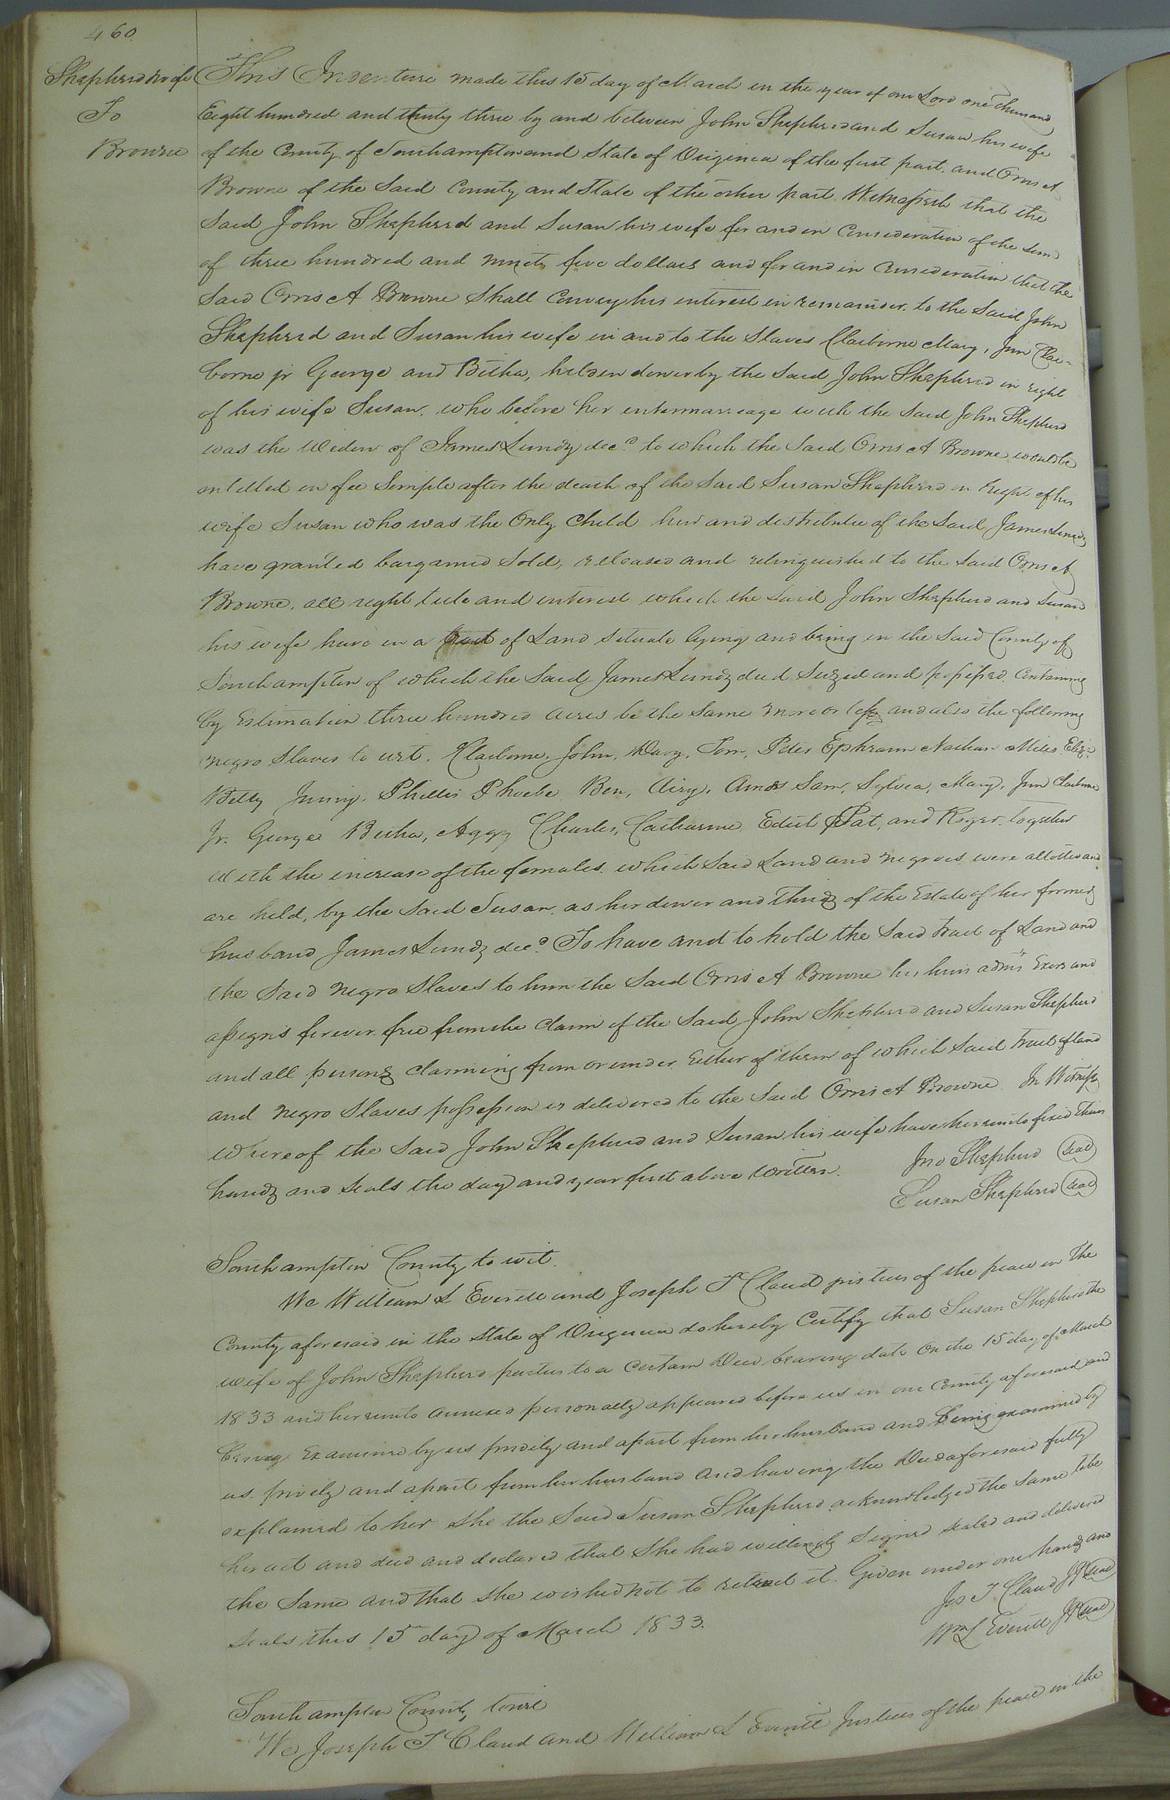 460
Shepherd & wife
To
Browne
This Indenture made this 15 day of March in the year of our Lord one Thousand
Eight hundred and thirty three by and between John Shepherd and Susan his wife
of the County of Southampton and State of Virginia of the first part, and Orris A
Browne of the Said County and State of the other part. Witnesseth that the
Said John Shepherd and Susan his wife for and in Consideration of the Sum
of three hundred and ninety five dollars and for and in Consideration that the
Said Orris A Browne Shall Convey his interest in remainder, to the Said John
Shepherd and Susan his wife in and to the Slaves Claiborne Mary, Jim Clai-
borne jr George and Bitha, held in dower by the Said John Shepherd in right
of his wife Susan, who before her intermarriage with the Said John Shepherd
was the Widow of James Lundy decd. to which the Said Orris A Browne would be
entitled in fee Simple after the death of the Said Susan Shepherd in Right of his
wife Susan who was the Only Child heir and distributee of the Said James Lundy
have granted bargained Sold, released and relinquished to the Said Orris A
Browne, all right title and interest which the Said John Shepherd and Susan
his wife have in a tract of Land Situate lying and being in the Said County of
Southampton of which the Said James Lundy died Siezed and possessed, Containing
by Estimation three hundred acres be the Same more or less and also the following
negro Slaves to wit. Claiborne, John, Davy, Tom, Peter Ephraim Nathan Miles Eliza
Betty Jenny, Phillis Phoebe Ben, Airy, Amos Sam, Sylvia, Mary, Jim Claiborne
Jr. George Bitha, Aggy Charles, Catharine Edith Pat, and Roger, together
With the increase of the females, which Said Land and negroes were allotted and
are held, by the Said Susan, as her dower and thirds of the Estate of her former
husband James Lundy decd. To have and to hold the Said tract of Land and
the Said negro Slaves to him the Said Orris A Browne his heirs admrs Exors and
assigns forever free from the claim of the Said John Shepherd and Susan Shepherd
and all persons claiming from or under Either of them of which Said tract of land
and negro Slaves possession is delivered to the Said Orris A Browne. In Witness
whereof the Said John Shepherd and Susan his wife have hereunto fixed their
hands and Seals the day and year first above Written.
Jno Shepherd (seal)
Susan Shepherd (seal)
Southampton County to wit.
We William L Everett and Joseph T Claud justices of the peace in the
County aforesaid in the State of Virginia do hereby Certify that Susan Shepherd the
wife of John Shepherd parties to a Certain Deed bearing date On the 15 day of March
1833 and hereunto annexed personally appeared before us in our County aforesaid and
being Examined by us privily and apart from her husband and being examined by
us privily and apart from her husband and having the Deed aforesaid fully
explained to her She the Said Susan Shepherd acknowledged the Same to be
her act and deed and declared that She had willingly Signed Sealed and delivered
the Same and that She wished not to retract it. Given under our hands and
Seals this 15 day of March 1833.
Jos T. Claud JP (seal)
Wm L Everett JP (seal)
Southampton County, towit
We Joseph T Claud and William L Everett Justices of the peace in the